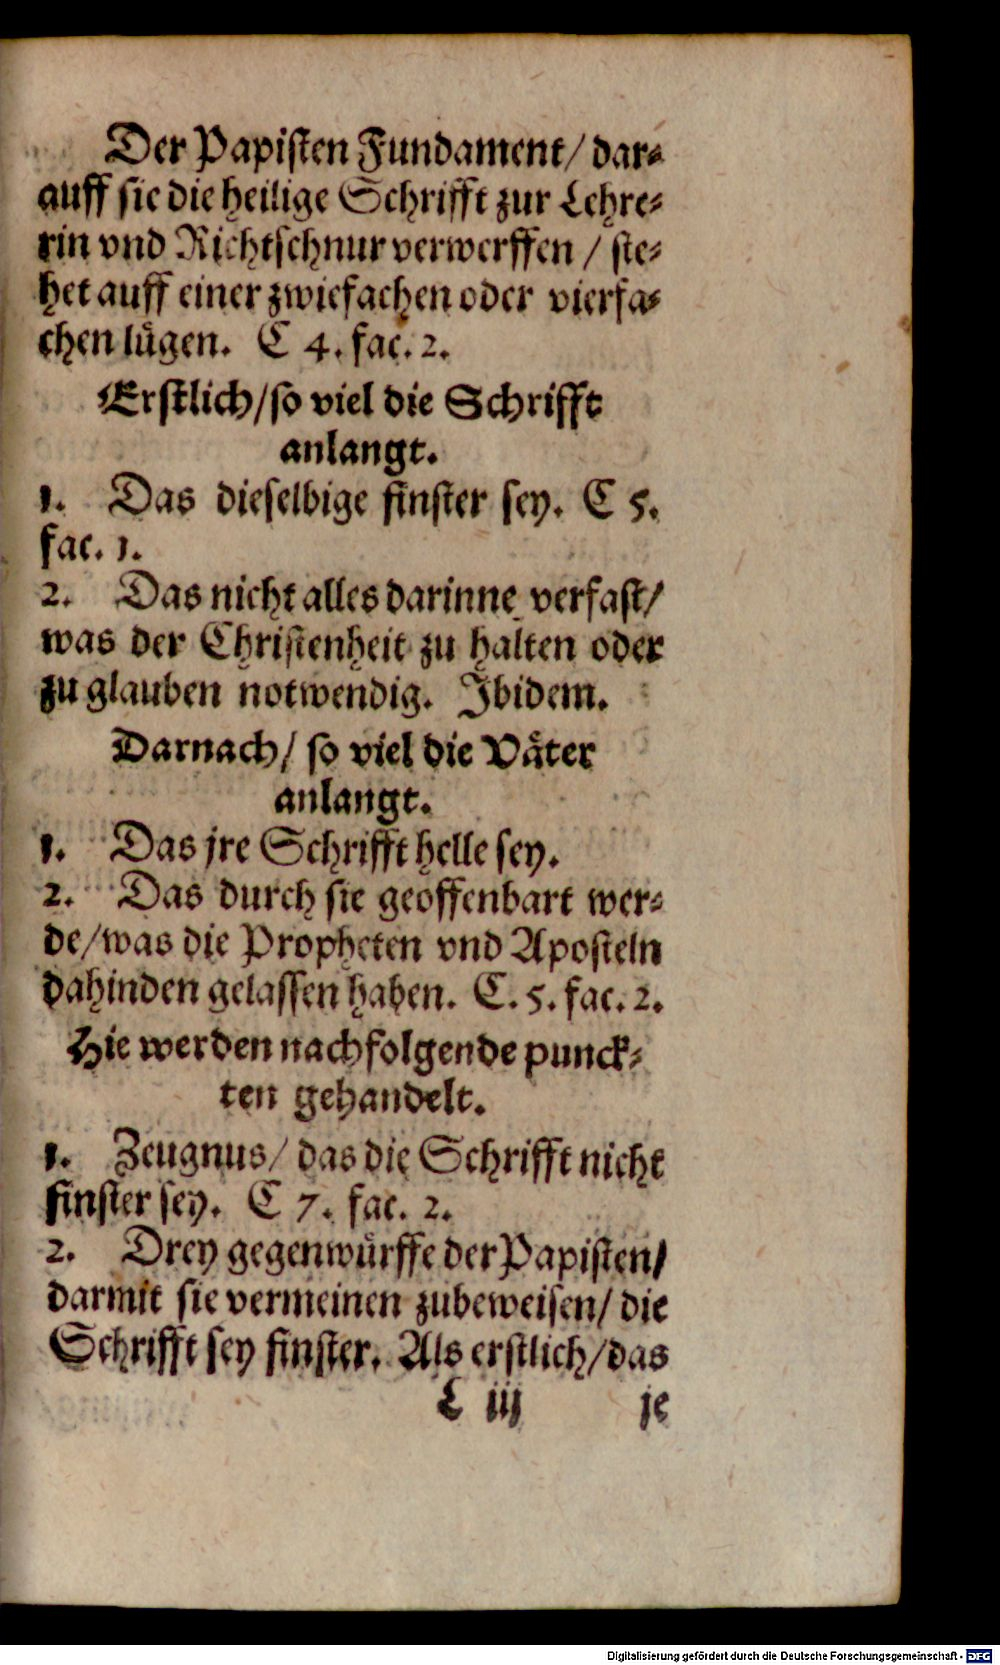 Der Papisten Fundament/ dar⸗
auff sie die heilige Schrifft zur Lehre⸗
rin vnd Richtschnur verwerffen / ste⸗
het auff einer zwiefachen oder vierfa⸗
chen lügen. C 4. fac. 2.
Erstlich/so viel die Schrifft
anlangt.
1. Das dieselbige finster sey. C 5.
fac. 1.
2. Das nicht alles darinne verfast/
was der Christenheit zu halten oder
zu glauben notwendig. Ibidem.
Darnach/ so viel die Väter
anlangt.
1. Das jre Schrifft helle sey.
2. Das durch sie geoffenbart wer⸗
de/was die Propheten vnd Aposteln
dahinden gelassen haben. C. 5. fac. 2.
Hie werden nachfolgende punck⸗
ten gehandelt.
1. Zeugnus/ das die Schrifft nicht
finster sey. C 7. fac. 2.
2. Drey gegenwürffe der Papisten/
darmit sie vermeinen zubeweisen/ die
Schrifft sey finster. Als erstlich/das
L iij je
Digitalisierung gefördert durch die Deutsche Forschungsgemeinschaft - DFG